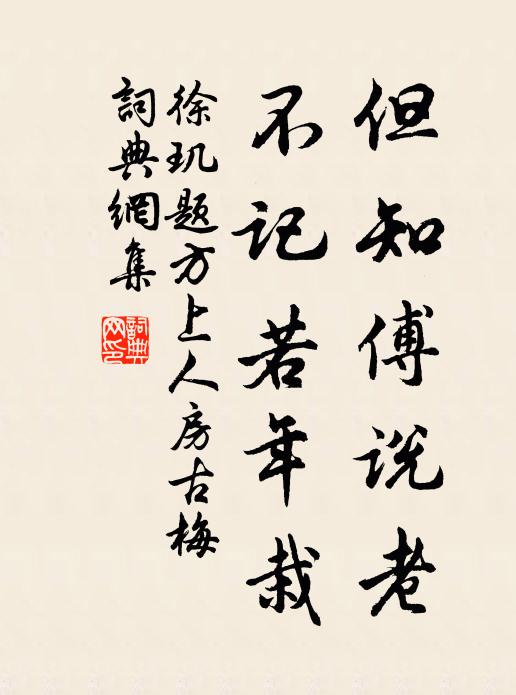 但知傅说老
不记若年栽
徐玑题方上人房古梅
詞典網集
詞典
网印